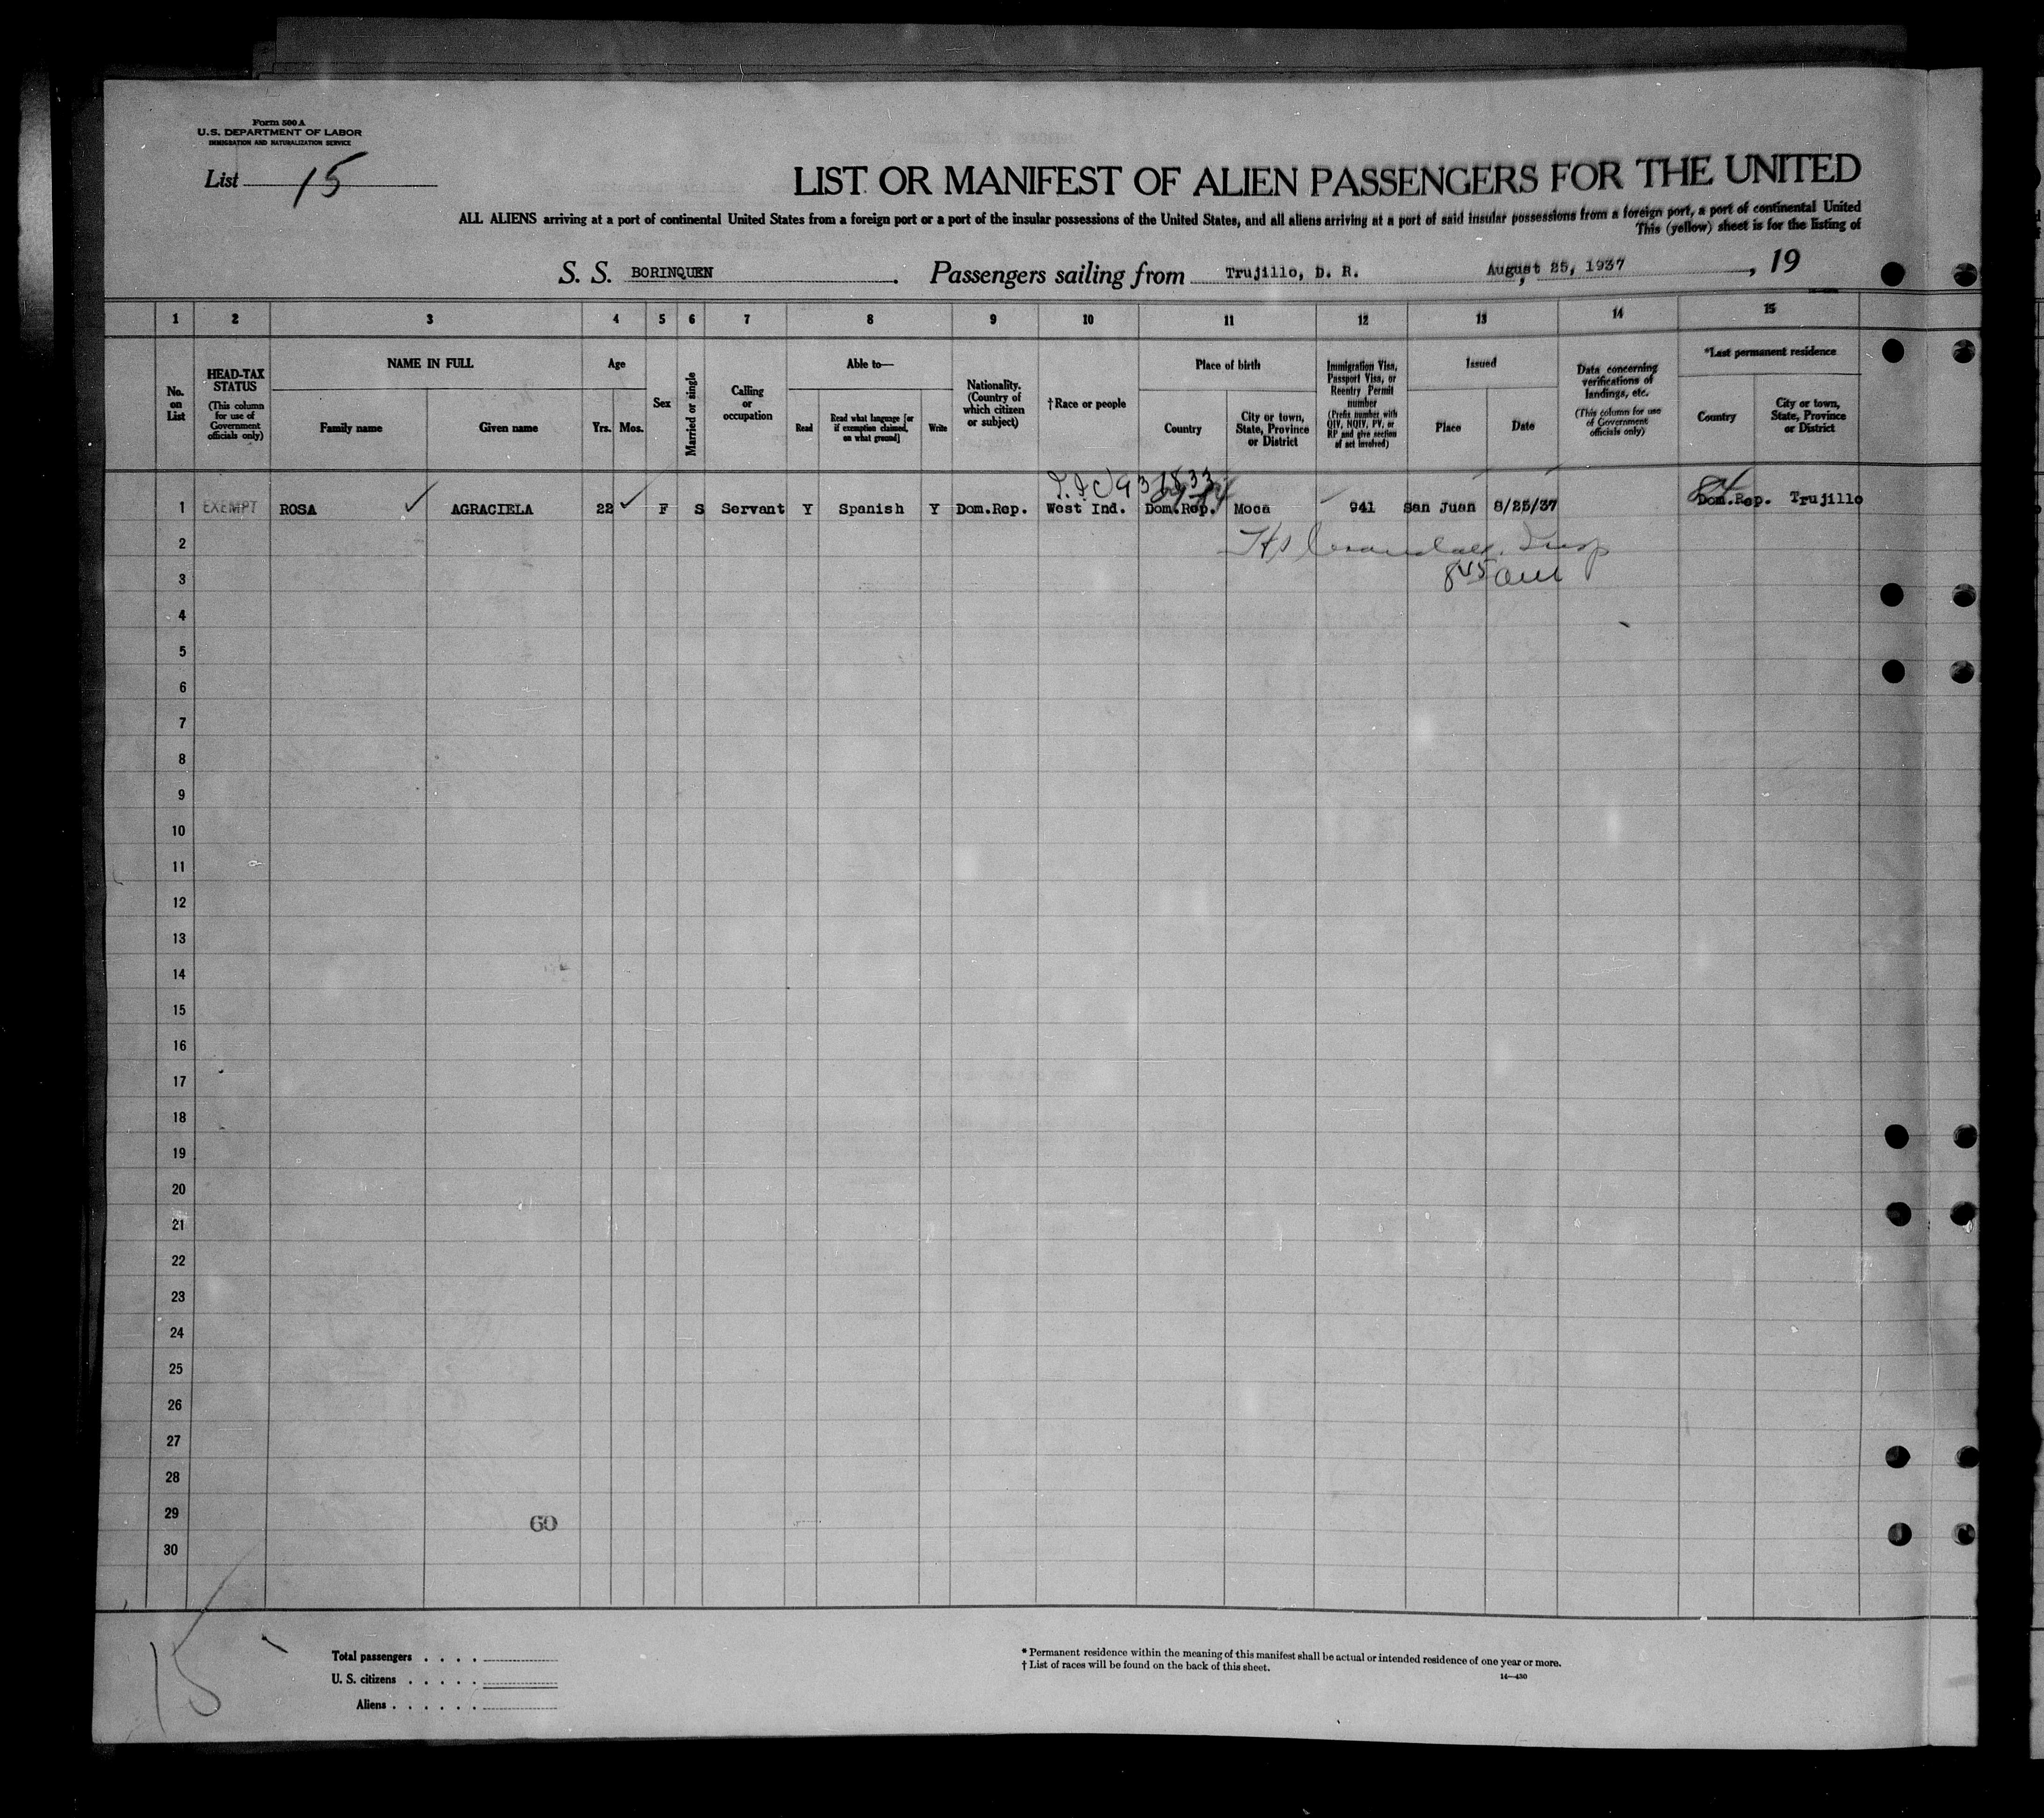 Form 500 A
U.S. DEPARTMENT OF LABOR
IMMIGRATION AND NATURALIZATION SERVICE
List 15
LIST OR MANIFEST OF ALIEN PASSENGERS FOR THE UNITED
ALL ALIENS arriving at a port of continental United States from a foreign port or a port of the insular possessions of the United States, and all aliens arriving at a port of said insular possessions from a foreign port, a port of continental United
This (yellow) sheet is for the listing of
S. S. BORINQUEN . Passengers sailing from Trujillo, D. R. , August 25, 1937 , 19
1 2 3 4 5 6 7 8 9 10 11 12 13 14 15
No. on List
HEAD-TAX STATUS
(This column for use of Government officials only)
NAME IN FULL
Family name Given name
Age
Yrs. Mos.
Sex
Married or single
Calling or occupation
Able to—
Read
Read what language [or if exemption claimed, on what ground]
Write
Nationality. (Country of which citizen or subject)
† Race or people
Place of birth
Country
City or town, State, Province or District
Immigration Visa, Passport Visa, or Reentry Permit number
(Prefix number with QIV, NQIV, PV, or RP and give section of act involved)
Issued
Place Date
Data concerning verifications of landings, etc.
(This column for use of Government officials only)
*Last permanent residence
Country
City or town, State, Province or District
1 EXEMPT ROSA AGRACIELA 22 F S Servant Y Spanish Y Dom.Rep. West Ind. Dom.Rep. Moca 941 San Juan 8/25/37 Dom.Rep. Trujillo
2
3 8 45 am
4
5
6
7
8
9
10
11
12
13
14
15
16
17
18
19
20
21
22
23
24
25
26
27
28
29
60
30
15
Total passengers . . . .
U. S. citizens . . . . .
Aliens . . . . . .
* Permanent residence within the meaning of this manifest shall be actual or intended residence of one year or more.
† List of races will be found on the back of this sheet.
14—430